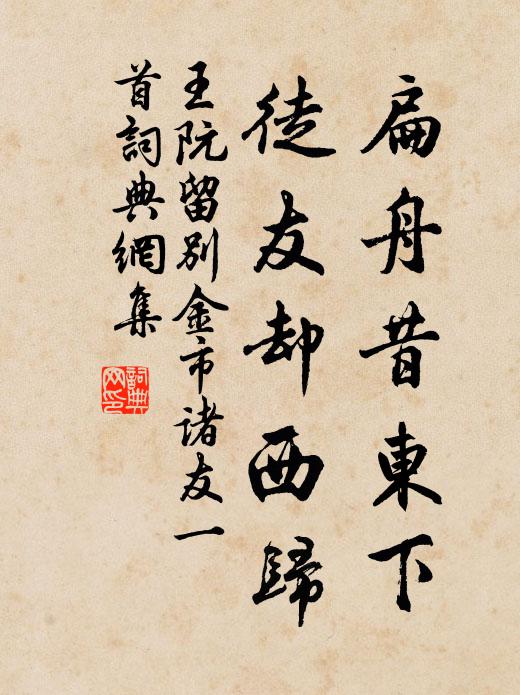 扁舟昔東下
徒友却西歸
王阮留別金市諸友一
首詞典網集
詞典網印